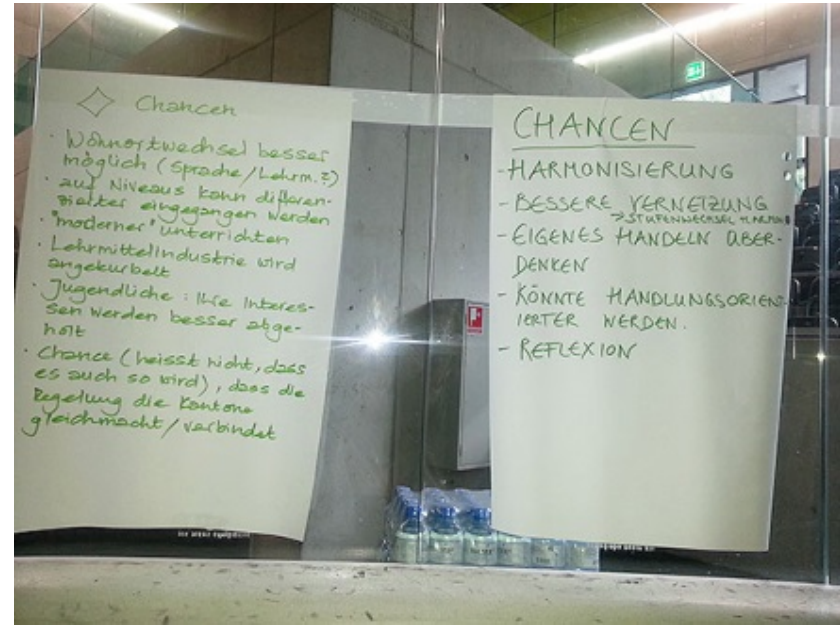 Chancen
· Wohnortwechsel besser
möglich (Sprache/Lehrm.?)
· auf Niveaus kann differen-
zierter eingegangen werden
· "moderner" unterrichten
· Lehrmittelindustrie wird
angekurbelt
· Jugendliche : Ihre Interes-
sen werden besser abge-
holt
· Chance (heisst nicht, dass
es auch so wird), dass die
Regelung die Kantone
gleichmacht/verbindet
CHANCEN
- HARMONISIERUNG
- BESSERE VERNETZUNG
→ STUFENWECHSEL HARMON
- EIGENES HANDELN ÜBER-
DENKEN
- KÖNNTE HANDLUNGSORIEN-
TIERTER WERDEN.
- REFLEXION